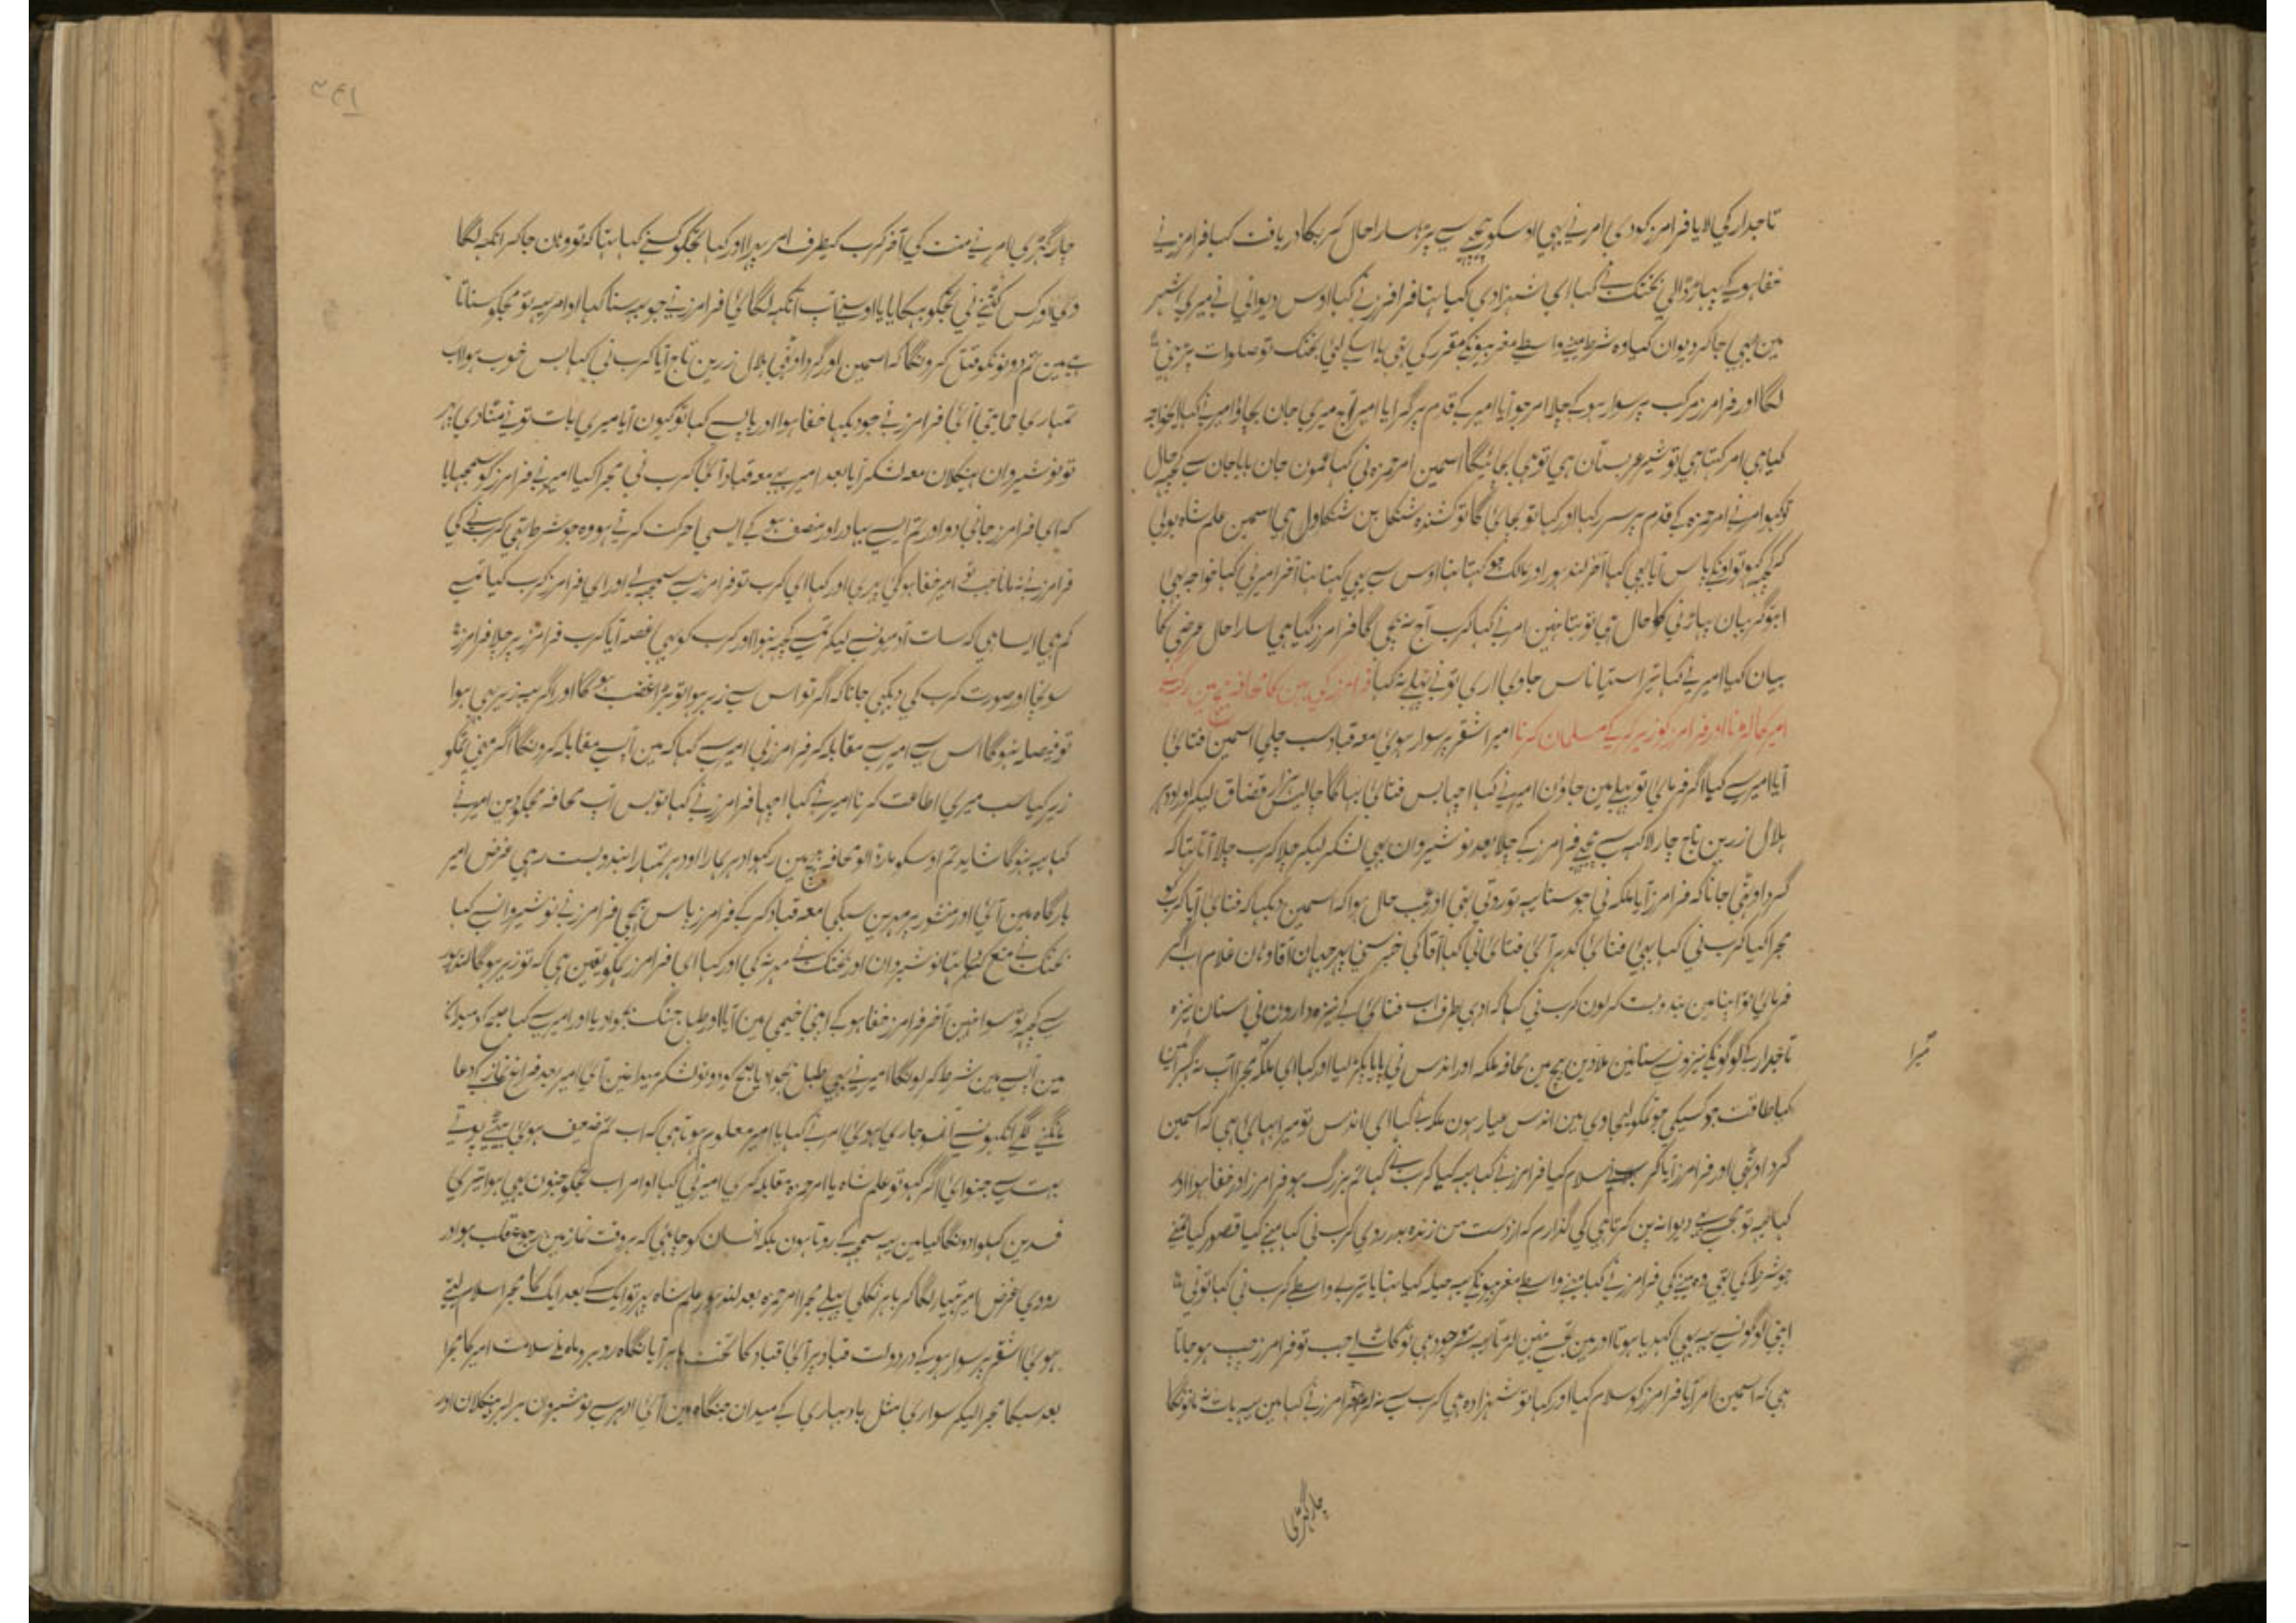 تاجدار کی لایا فرامرز کو دی امر نے بہی اوسکو پیچہے سے پڑہا سارا حال کرب کا دریافت کیا فرامرز نے
خفا ہو کے پہاڑ ڈالی بختک نے کہا ای شہزادی کیا تہا فرامرز نے کہا اوس دیوانی نے میری شہر
مین بہی جا کر دیوان کیا وہ شرط مینے واسطے مقرر کی تہی بختک تو صلوات پڑہنی
لگا اور فرامرز مرکب پر سوار ہو کے چلا امر جو آیا امیر کے قدم پر گرا یا امیر آج میری جان بچاؤ امیر نے کہا ای خواجہ
کیا ہی امر کہتا ہی تو شیر عربستان ہی تو ہی بچائیگا اسمین امیر حمزہ نی کہا عمون جان بابا جان سے کچہ حال
تو کہو امر نے امیر حمزہ کے قدم پر سر رکہا اور کہا تو بچائی گا تو کشندہ شنگل بن شنگاول ہی اسمین علم شاہ بولی
کہ کچہ کہو تو اونکے پاس آیا یہی کہا آخر لندہور اور مالک جو کہتا تہا اوس سے یہی کہتا تہا آخر امیر نی کہا خواجہ یہی
ابتو گریبان پہاڑنی کا حال ہی تو بتا نہین امر نے کہا کرب آج نہ بچی گا فرامرز گیا ہی سارا حال عرضی کا
بیان کیا امیر نے کہا تیرا استیاناس جاوی اری تو نے پہلے نہ کہا فرامرز کی بہن کا محافہ بیچ مین رکہکے
امیر کا لڑنا اور فرامرز کو زیر کر کے مسلمان کرنا امیر اشقر پر سوار ہوئی معہ قباد سب چلی اسمین فتائی
آیا امیر سے کہا اگر فرمائی تو پہلے مین جاؤن امیر نے کہا اچہا بس فتائی بہاگا چالیس ہزار قضاق لیکر اور اودہر
ہلال زرین تاج چار لاکہہ سے پیچہے فرامرز کے چلا بعد نوشیروان بہی لشکر لیکر چلا کرب چلا آتا تہا کہ
گرد اوٹہی جانا کہ فرامرز آیا ملکہ نی جو سنا یہ تو روتی تہی اور عجب حال ہوا کہ اسمین دیکہا کہ فتائی آیا کرب کو
مجرا کیا کرب نی کہا بہی فتائی کدہر آئی فتائی نی کہا آقا کی خبر سنی پہر جہان آقا وہان غلام اب اگر
فرمائی تو اپنا مین بندوبست کر لون کرب نی کہا کہ اوہی طرف اب فتائی کے نیزہ دارون نی سنان نیزہ
تاجدار کے لوگونکے نیزونسے سنانین ملا دین بیچ مین محافہ ملکہ اور اندس نی پایا پکڑ لیا اور کہا ای ملکہ مجرا اب نہ گہبرائین
کیا طاقت جو کسیکی جو تمکو لیجاوی مین اندس عیار ہون ملکہ نے کہا ای اندس تو میرا بہائی ہی کہ اسمین
گرد اوٹہی اور فرامرز آیا کرب نے سلام کیا فرامرز نے کہا یہ کیا کرب نے کہا تم بزرگ ہو فرامرز اور خفا ہوا اور
کہا کچہ تو مجہسے دیوانہ پن کرتا ہی کی گذارم کہ از دست من زندہ بدر روی کرب نی کہا مینے کیا قصور کیا تمنے
جو شرط کی تہی وہ مینے کی فرامرز نے کہا مینے واسطے یہ حیلہ کیا تہا یا تیرے واسطے کرب نی کہا تونی
اپنی لوگونسے یہ بہی کہدیا ہوتا اور مین تجہسے نہین لڑتا یہ سر موجود ہی تو کاٹ لے جب تو فرامرز چپ ہو جاتا
ہی کہ اسمین امر آیا فرامرز کو سلام کیا اور کہا تو شہزادہ ہی کرب سے نہ لڑ فرامرز نے کہا مین یہ بات نہ مانونگا
چار گہڑی
چار گہڑی امر نے منت کی آخر کرب کیطرف امر پہرا اور کہا تجکو کسنے کہا تہا کہ تو وہان جا کر انکہہ لگا
دی اور کس کتنے نی تجکو بہکایا یا اوسنے آپ انکہہ لگائی فرامرز نے جو یہ سنا کہا او امر یہ تو مجکو سناتا
ہے مین تم دونونکو قتل کرونگا کہ اسمین اور گرد اوٹہی ہلال زرین تاج آیا کرب نی کہا بس خوب ہوا اب
تمہاری حمایتی آئی فرامرز نے جو دیکہا خفا ہوا اور یا پسے کہا تو کیون آیا میری بات تونے مٹا دی پہر
تو نوشیروان ہیکلان معہ لشکر آیا بعد امیر بہی معہ قباد آئی کرب نی مجرا کیا امیر نے فرامرز کو سمجہایا
کہ ای فرامرز جانی دو اور تم ایسے بہادر اور منصف ہو کے ایسی حرکت کرتے ہو وہ جو شرط تہی کرب نے کی
فرامرز نے نہ مانا جب تو امیر خفا ہو کی پہری اور کہا ای کرب تو فرامرز سے سمجہ لے اور ای فرامرز کرب کیا تمسے
کم ہی ایسا ہی کہ سات آدمونسے لیکر تمسے کچہ نہوا اور کرب کو بہی غصہ آیا کرب فرامرز پر چلا فرامرز
سونچا اور صورت کرب کی دیکہی جانا کہ اگر تو اس سے زیر ہوا تو بڑا غضب ہوگا اور اگر یہ زیر بہی ہوا
تو فیصلہ نہوگا اس سے امیر سے مقابلہ کر فرامرز نی امیر سے کہا کہ مین آپ سے مقابلہ کرونگا اگر مینی تمکو
زیر کیا سب میری اطاعت کرنا امیر نے کہا اچہا فرامرز نے کہا تو بس اب محافہ مجکو دین امیر نے
کہا یہ نہوگا شاید تم اوسکو مار ڈالو محافہ بیچ مین رکہو ادہر ہمارا اودہر تمہارا بندوبست رہی غرض امیر
بارگاہ مین آئی اور منشور پر مہرین سبکی معہ قباد کر کے فرامرز پاس بہیجی فرامرز نے نوشیروان سے کہا
بختک نے منع کیا تہا نوشیروان اور بختک نے مہر نہ کی اور کہا ای فرامرز ہمکو یقین ہی کہ تو زیر ہوگا لندہور
سے کچہ تو سوا نہین آخر فرامرز خفا ہو کے اپنی خیمی مین آیا اور طبل جنگ بجوا دیا اور امیر سے کہا صبح کو میدان
مین آپ سے مین شرط کر لونگا امیر نے بہی طبل بجوا یا صبح کو دونو لشکر میدانمین آئی امیر بعد فراغ نماز کے دعا
مانگنے لگے انکہونسے آنسو جاری ہوئی امر نے کہا یا امیر معلوم ہوتا ہی کہ اب تم ضعیف ہوئی بیٹے پوتے
بہت سے جنوائی اگر کہو تو علم شاہ یا امیر حمزہ مقابلہ کری امیر نی کہا او امر اب تجکو جنون بہی ہوا تیری
فصدین کہلوا دونگا کیا مین یہ سمجہہ کے روتا ہون بلکہ انسان کو چاہئی کہ ہر وقت نماز مین رجوع قلب ہو اور
رودی غرض امیر ہتیار لگا کر باہر نکلی پہلے مجرا امیر حمزہ بعد لندہور علم شاہ پہر تو ایک کے بعد ایک کا مجرا سلام لیتے
ہوئی اشقر پر سوار ہو کے در دولت قباد پر آئی قباد کا تخت باہر آیا نگاہ روبرو سلامت امیر کا مجرا
بعد سبکا مجرا لیکر سواری مثل باد بہاری کے میدان جنگاہ مین آئی ادہر سے نوشیروان ہر لہر ہیکلان اور